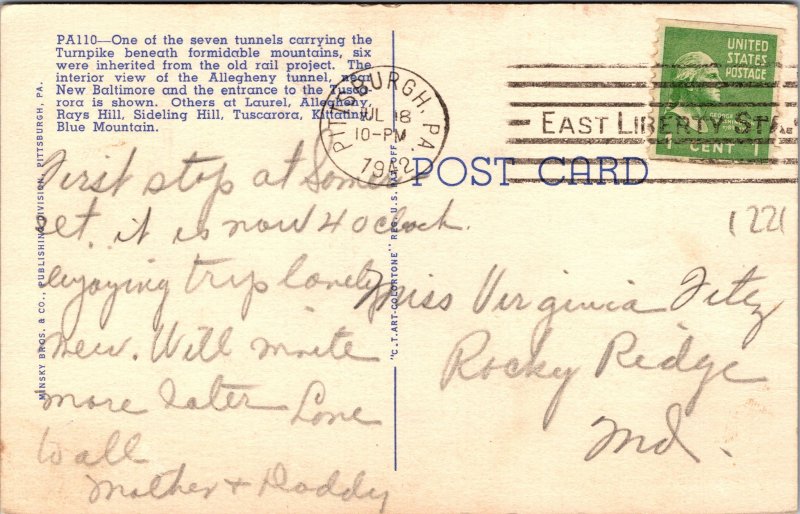 PA110—One of the seven tunnels carrying the
Turnpike beneath formidable mountains, six
were inherited from the old rail project. The
interior view of the Allegheny tunnel, near
New Baltimore and the entrance to the Tusca-
rora is shown. Others at Laurel, Allegheny,
Rays Hill, Sideling Hill, Tuscarora, Kittatiny
Blue Mountain.
First stop at Somer
set. it is now 4 oclock.
enjoying trip lovely
view. Will write
more later Love
to all
Mother + Daddy
MINSKY BROS. & CO., PUBLISHING DIVISION, PITTSBURGH, PA.
"C.T. ART-COLORTONE" REG. U.S. PAT. OFF.
POST CARD
PITTSBURGH, PA.
JUL 18
10-PM
1952
EAST LIBERTY STA
UNITED
STATES
POSTAGE
1 CENT
1221
Miss Virginia Fitez
Rocky Ridge
Md.